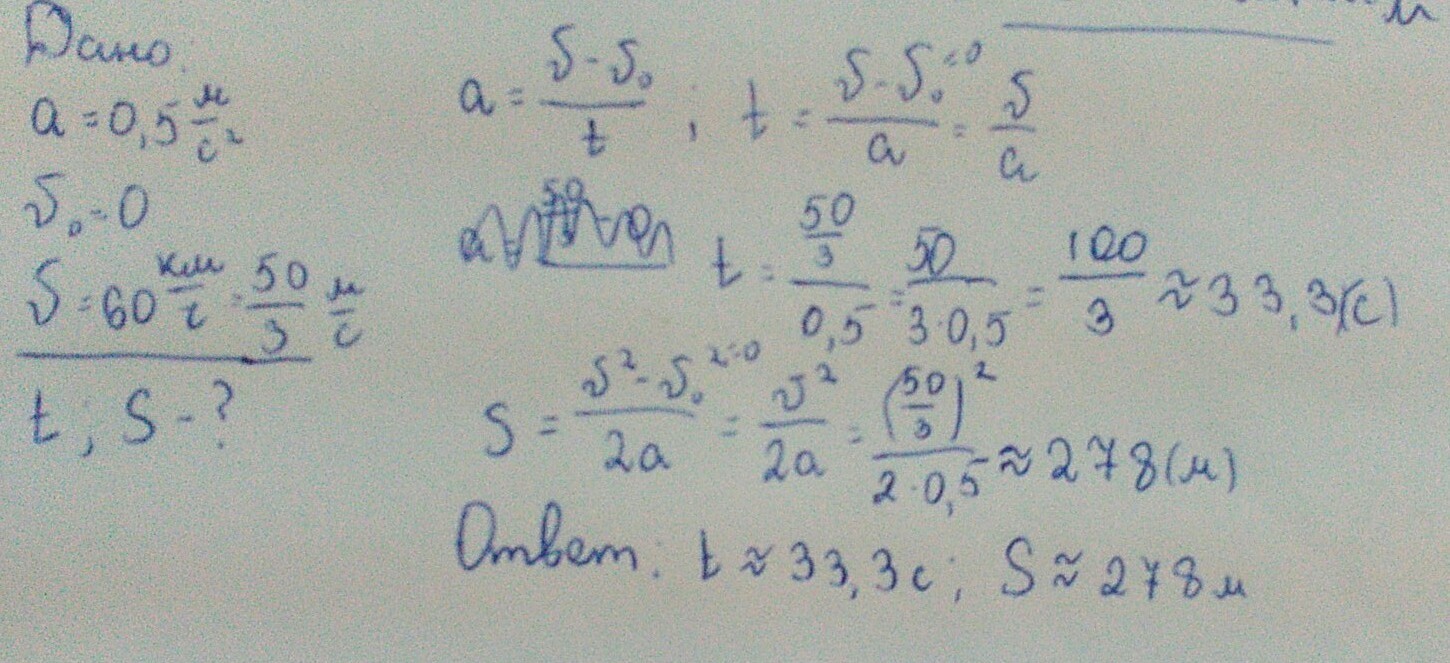 Дано:
a = 0,5 м/с²
υ₀ = 0
υ = 60 км/г = 50/3 м/с
t ; S - ?
a = (υ - υ₀)/t ; t = (υ - υ₀⁼⁰)/a = υ/a
t = (50/3)/0,5 = 50/(3·0,5) = 100/3 ≈ 33,3(с)
S = (υ² - υ₀²⁼⁰)/2a = υ²/2a = (50/3)²/(2·0,5) ≈ 278(м)
Ответ: t ≈ 33,3с; S ≈ 278м